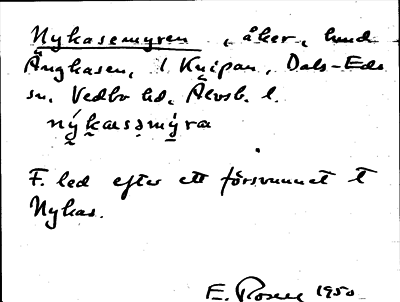 Nykasemyren, åker, hmd
Ängkasen, l. Knipan, Dals-Eds
sn, Vedbo hd, Älvsb. l.
nýkasəmýra
F. led efter ett försvunnet t
Nykas.
E. Rosell 1950